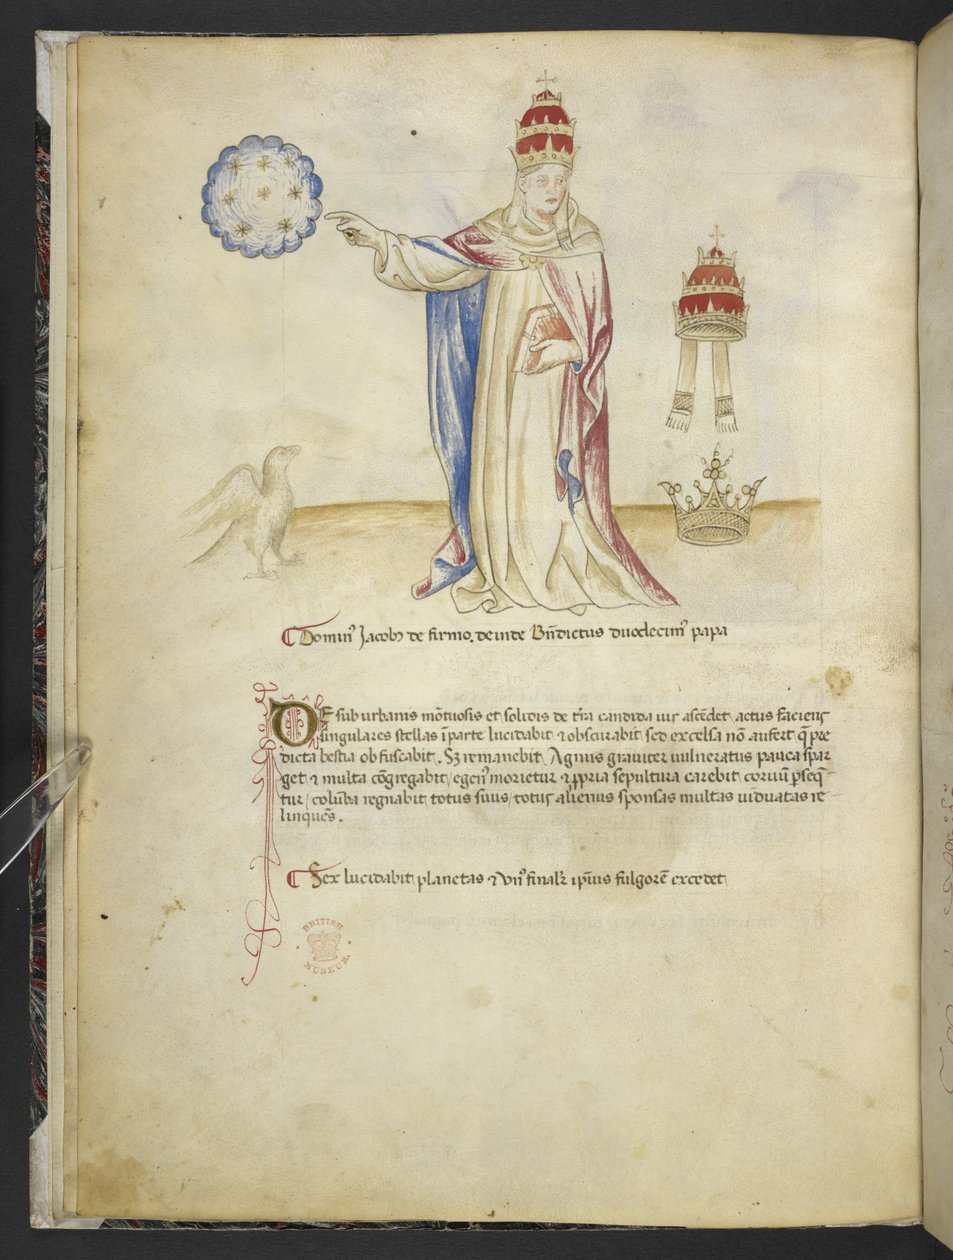 Domin⁹ Jacob⁹ de firmo. deinde Bn̄dictus duodecim⁹ papa
DE suburbanis mōtuosis et solidis de t̄ra candida uir ascēdet actus faciens
singulares stellas ī parte lucidabit ⁊ obscurabit sed excelsa nō aufert q̄ pre
dicta bestia obfuscabit. Sꝫ remanebit Agnus grauiter uulneratus pauca spar
get ⁊ multa cōgregabit egen⁹ morietur ⁊ ꝓpria sepultura carebit coruū ꝑseq̄
tur columba regnabit totus suus totus alienus sponsas multas uiduatas re
linquēs.
Sex lucidabit planetas ⁊ un⁹ finalr̄ ip̄ius fulgorē excedet
BRITISH
MUSEUM